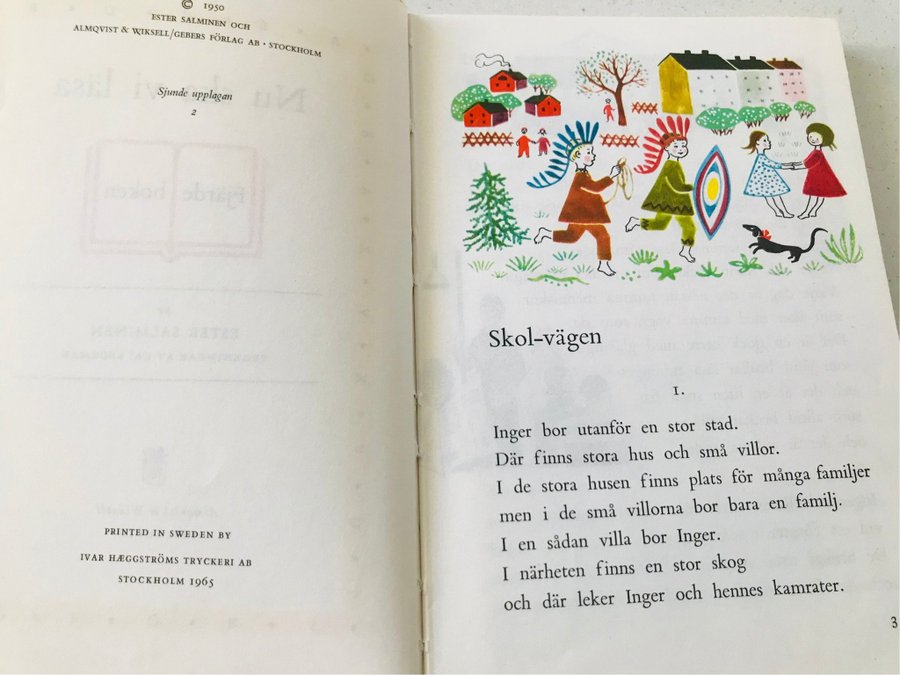 © 1950
ESTER SALMINEN OCH
ALMQVIST & WIKSELL/GEBERS FÖRLAG AB · STOCKHOLM
Sjunde upplagan
2
PRINTED IN SWEDEN BY
IVAR HÆGGSTRÖMS TRYCKERI AB
STOCKHOLM 1965
Skol-vägen
1.
Inger bor utanför en stor stad.
Där finns stora hus och små villor.
I de stora husen finns plats för många familjer
men i de små villorna bor bara en familj.
I en sådan villa bor Inger.
I närheten finns en stor skog
och där leker Inger och hennes kamrater.
3